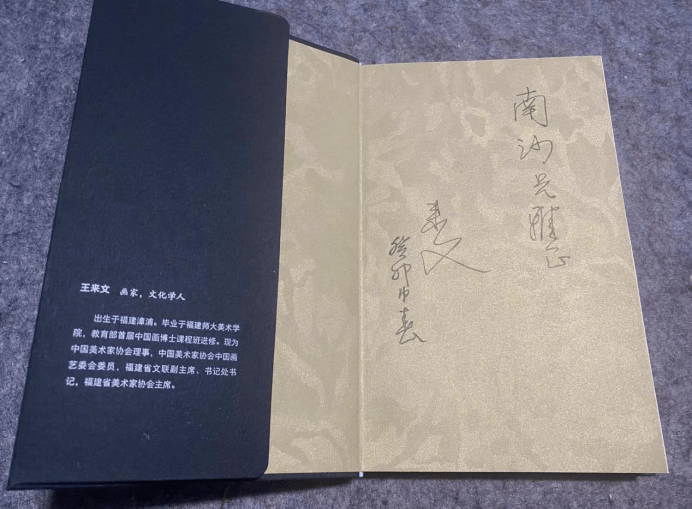 王来文 画家，文化学人
出生于福建漳浦。毕业于福建师大美术学
院，教育部首届中国画博士课程班进修。现为
中国美术家协会理事，中国美术家协会中国画
艺委会委员、福建省文联副主席、书记处书
记，福建省美术家协会主席。
南沙兄雅正
来文
癸卯中春